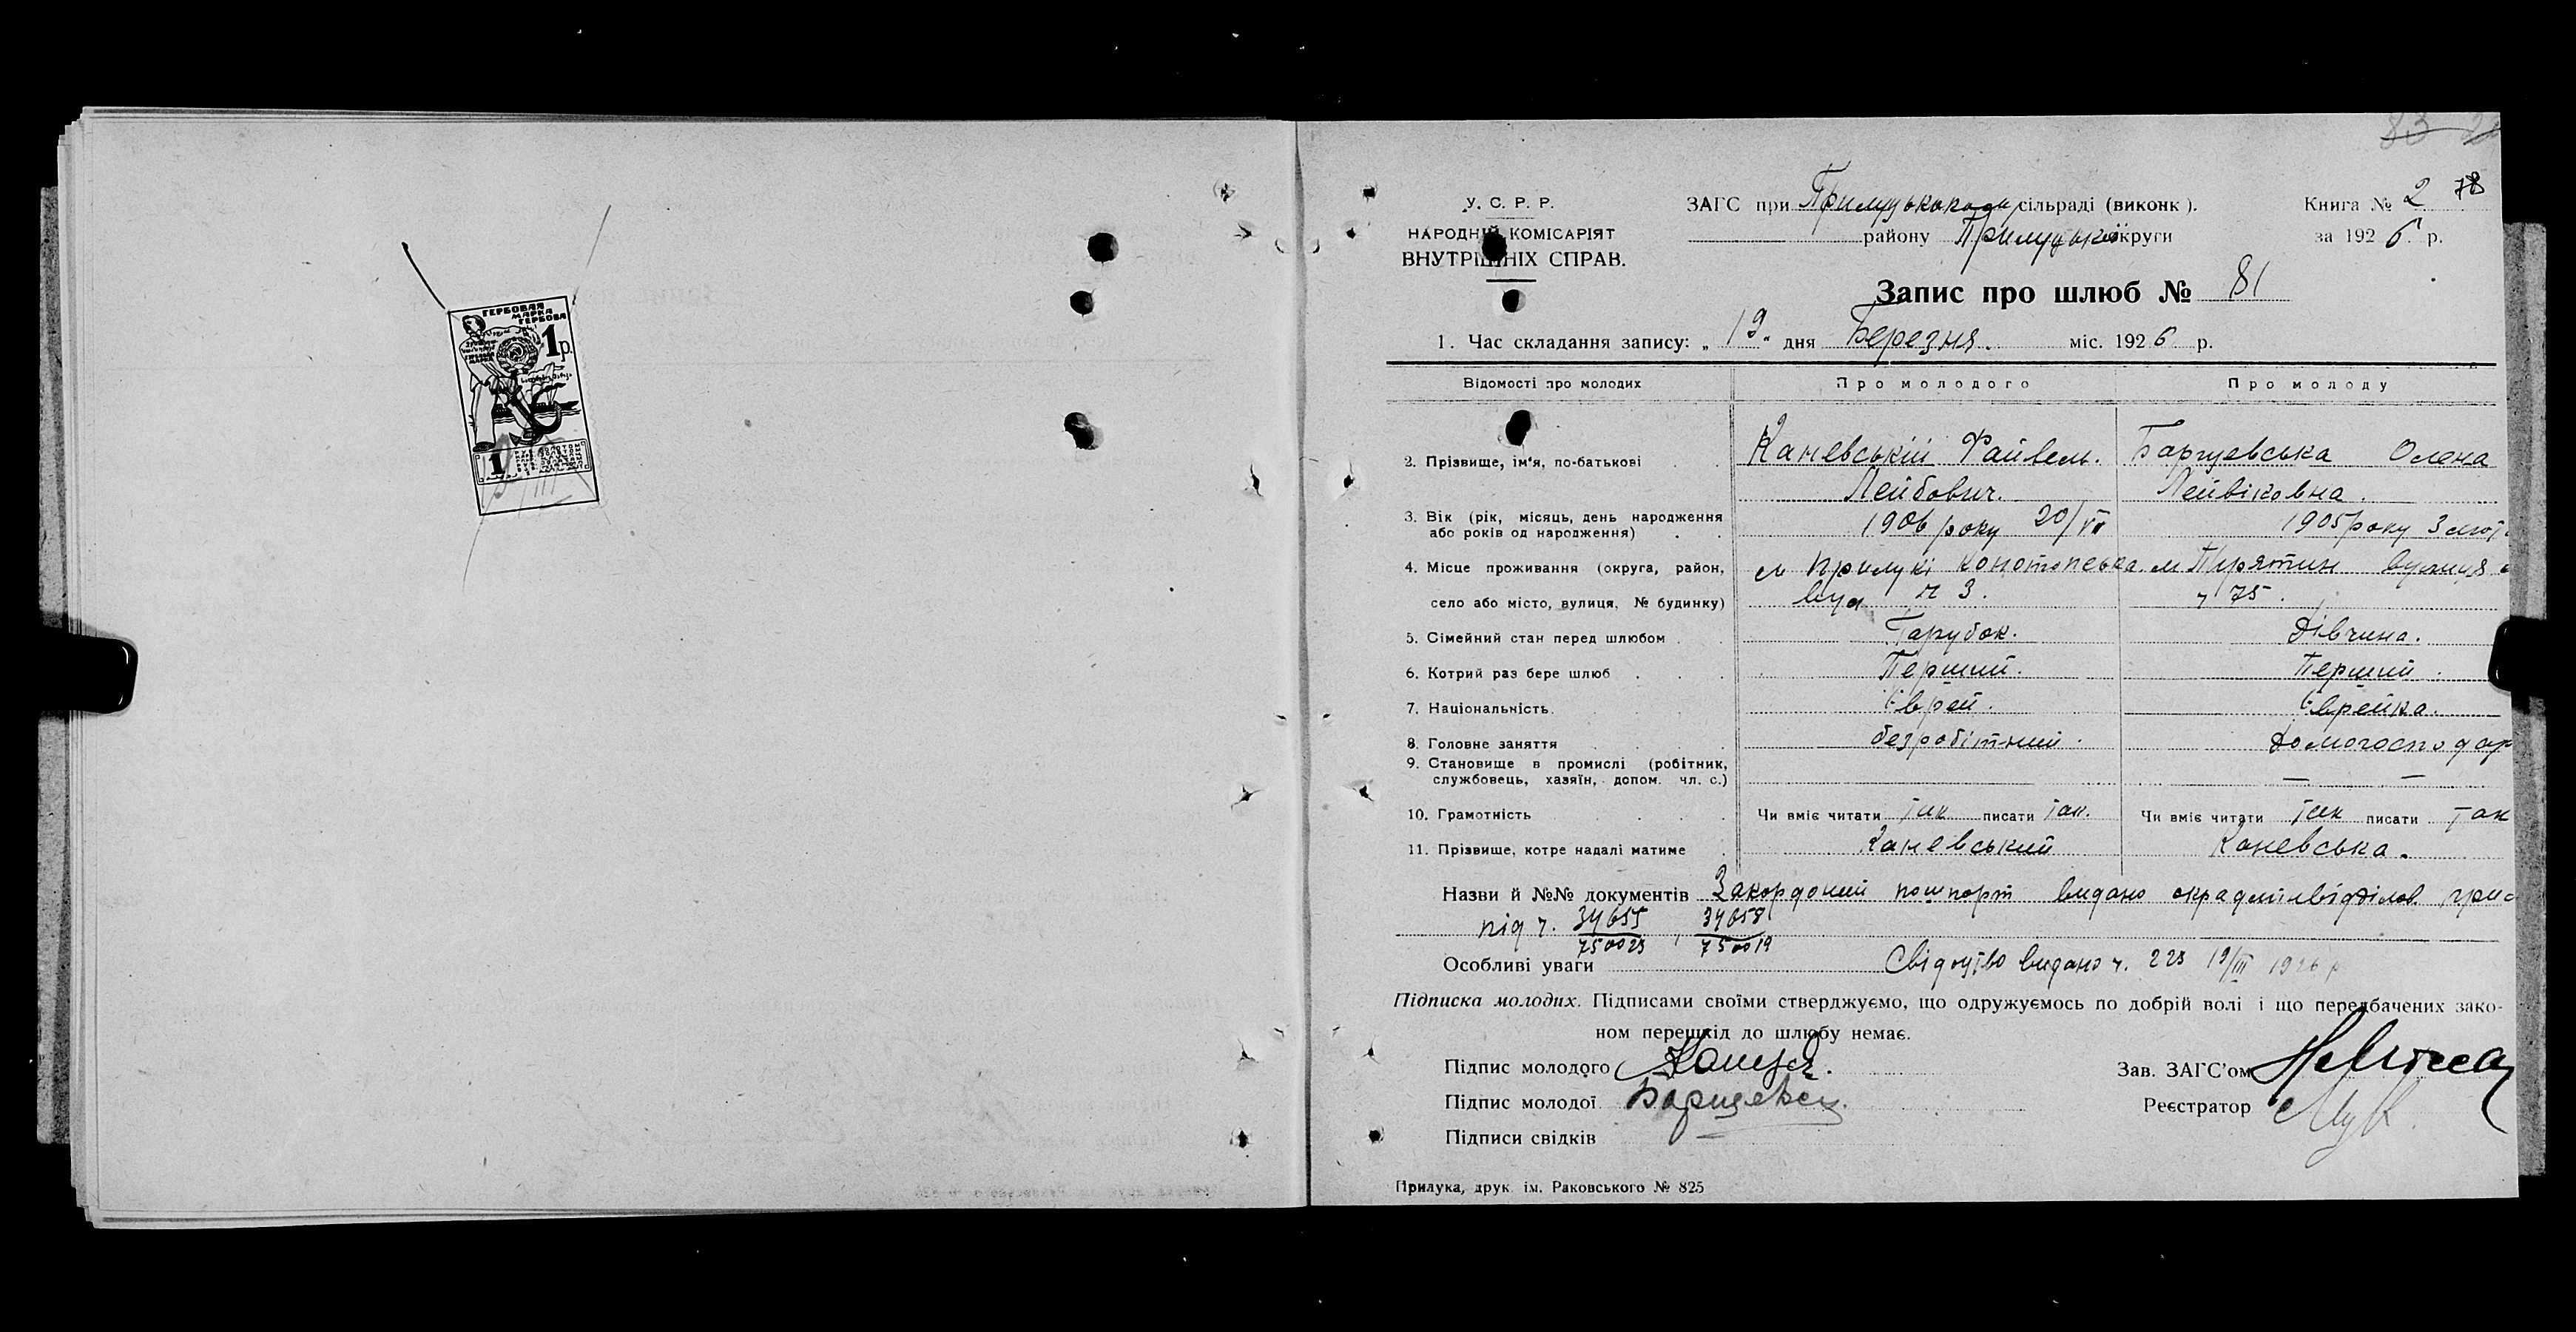 ГЕРБОВАЯ
МАРКА
ГЕРБОВА
1 р.
1
83
У. С. Р. Р.
НАРОДНІЙ КОМІСАРІЯТ
ВНУТРІШНІХ СПРАВ.
ЗАГС при сільраді (виконк).
Книга № 2 78
району Прилуцької округи
за 1926 р.
Запис про шлюб № 81
1. Час складання запису: „19" дня Березня. міс. 1926 р.
Відомості про молодих Про молодого Про молоду
2. Прізвище, ім'я, по-батькові Каневській Файвель. Борщевська Олена
Лейбович. Лейвіковна.
3. Вік (рік, місяць, день народження 1906 року 20/VII 1905 року 3
або років од народження)
4. Місце проживання (округа, район, м Прилукі Конотопська м Пирятин вулиця
село або місто, вулиця, № будинку) вул ч 3. ч 75.
5. Сімейний стан перед шлюбом Парубок. Дівчина.
6. Котрий раз бере шлюб Перший. Перший.
7. Національність Єврей. Єврейка.
8. Головне заняття безробітний. Домогосподар
9. Становище в промислі (робітник,
службовець, хазяїн, допом. чл. с.) — —
10. Грамотність Чи вміє читати так писати так. Чи вміє читати так писати так
11. Прізвище, котре надалі матиме Каневський Каневська.
Назви й №№ документів Закордоний пошпорт видано окрадмінвідділов.
під ч. 34655/750023, 34658/750019
Особливі уваги Свідоцтво видано ч. 223 19/III 1926 р
Підписка молодих. Підписами своїми стверджуємо, що одружуємось по добрій волі і що передбачених зако-
ном перешкід до шлюбу немає.
Підпис молодого
Зав. ЗАГС'ом
Підпис молодої Борщевск
Реєстратор
Підписи свідків
Прилука, друк. ім. Раковського № 825